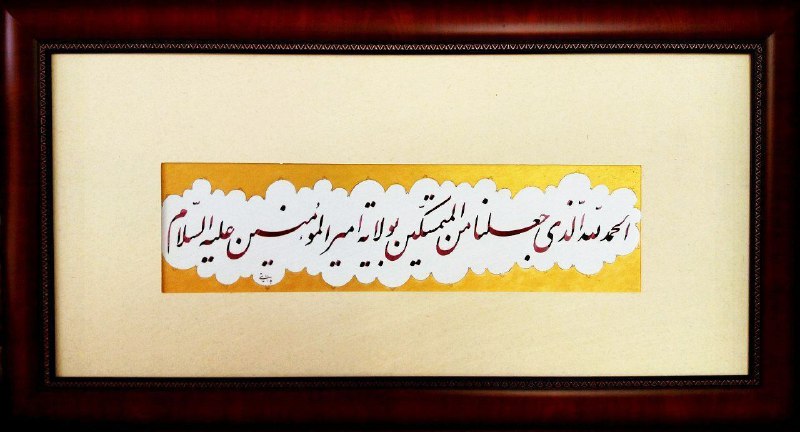 الحمدلله الّذی جعلنا من المتمسّکین بولایة امیرالمؤمنین علیه السّلام